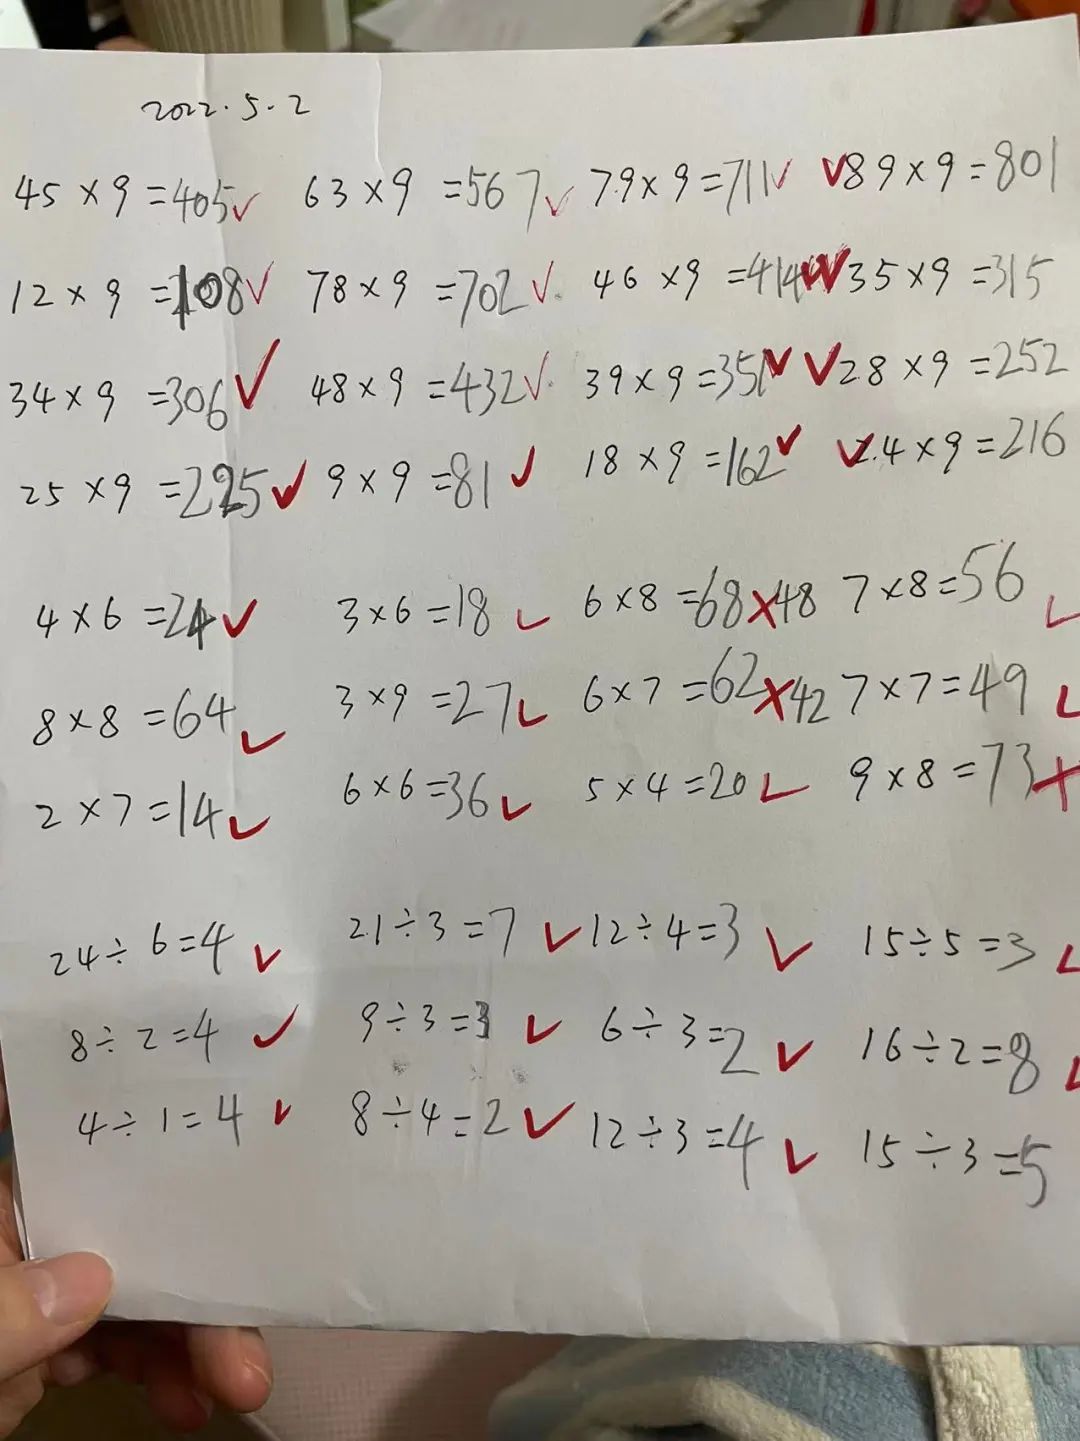 2022.5.2
45×9=405✓ 63×9=567✓ 79×9=711✓ ✓89×9=801
12×9=108✓ 78×9=702✓ 46×9=414✓ ✓35×9=315
34×9=306✓ 48×9=432✓ 39×9=351✓ ✓28×9=252
25×9=225✓ 9×9=81✓ 18×9=162✓ ✓24×9=216
4×6=24✓ 3×6=18✓ 6×8=68×48 7×8=56✓
8×8=64✓ 3×9=27✓ 6×7=62×42 7×7=49✓
2×7=14✓ 6×6=36✓ 5×4=20✓ 9×8=73×
24÷6=4✓ 21÷3=7✓ 12÷4=3✓ 15÷5=3✓
8÷2=4✓ 9÷3=3✓ 6÷3=2✓ 16÷2=8✓
4÷1=4✓ 8÷4=2✓ 12÷3=4✓ 15÷3=5